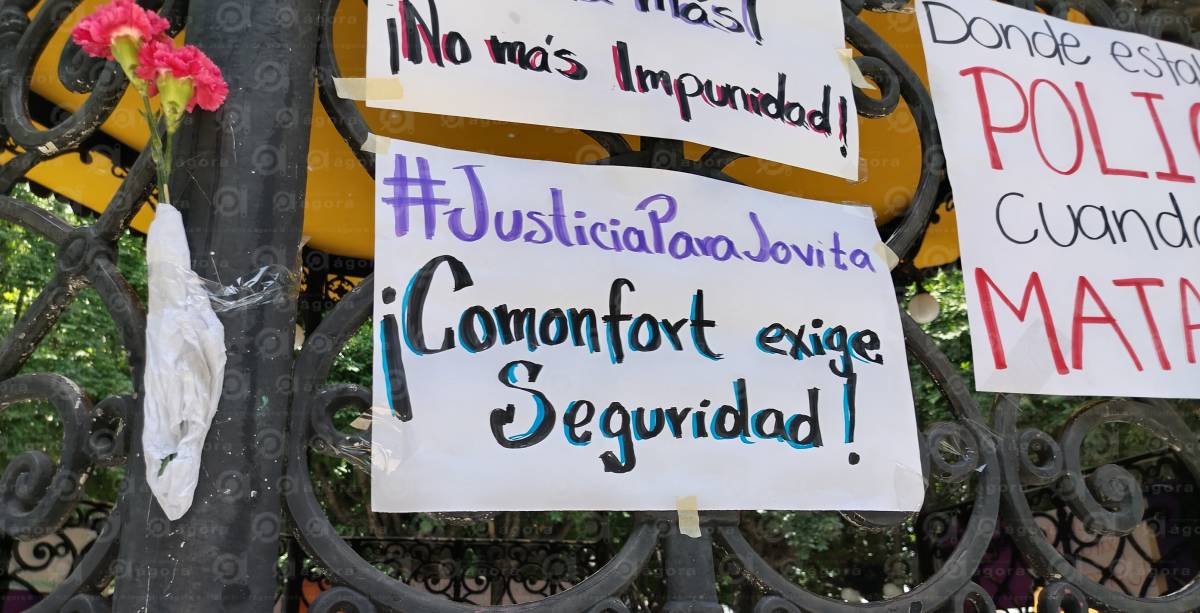 más!
¡No más Impunidad!
#JusticiaParaJovita
¡Comonfort exige
Seguridad!
Donde
Cuando
ágora